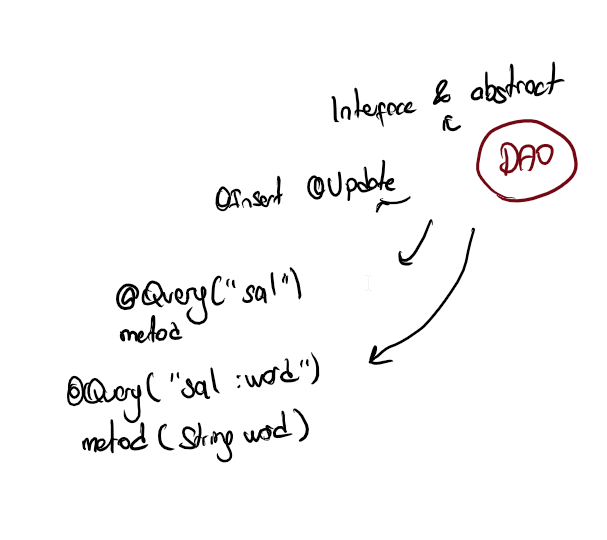 Interface & abstract
DAO
@Insert @Update
@Query("sql")
metod
@Query("sql :word")
metod (String word)